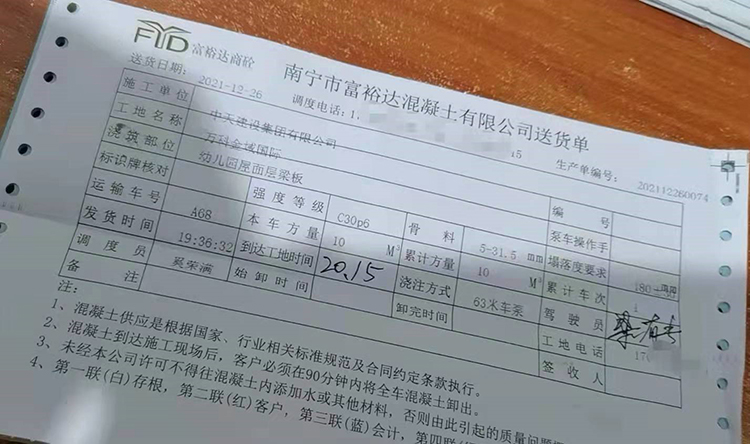 FYD 富裕达商砼
南宁市富裕达混凝土有限公司送货单
送货日期: 2021-12-26 调度电话: 1 15 生产单编号: 202112260074
施工单位 中天建设集团有限公司 编号
工地名称 万科金域国际 泵车操作手
浇筑部位 幼儿园屋面层梁板 塌落度要求 180
标识牌核对 强度等级 C30p6 骨料 5-31.5 mm 累计车次 1
运输车号 A68 本车方量 10 M³ 累计方量 10 M³ 驾驶员
发货时间 19:36:32 到达工地时间 20.15 浇注方式 63米车泵 工地电话 17
调度员 吴荣满 始卸时间 卸完时间 签收人
备注
注:
1、混凝土供应是根据国家、行业相关标准规范及合同约定条款执行。
2、混凝土到达施工现场后，客户必须在90分钟内将全车混凝土卸出。
3、未经本公司许可不得往混凝土内添加水或其他材料，否则由此引起的质量问题
4、第一联(白)存根，第二联(红)客户，第三联(蓝)会计，第四联